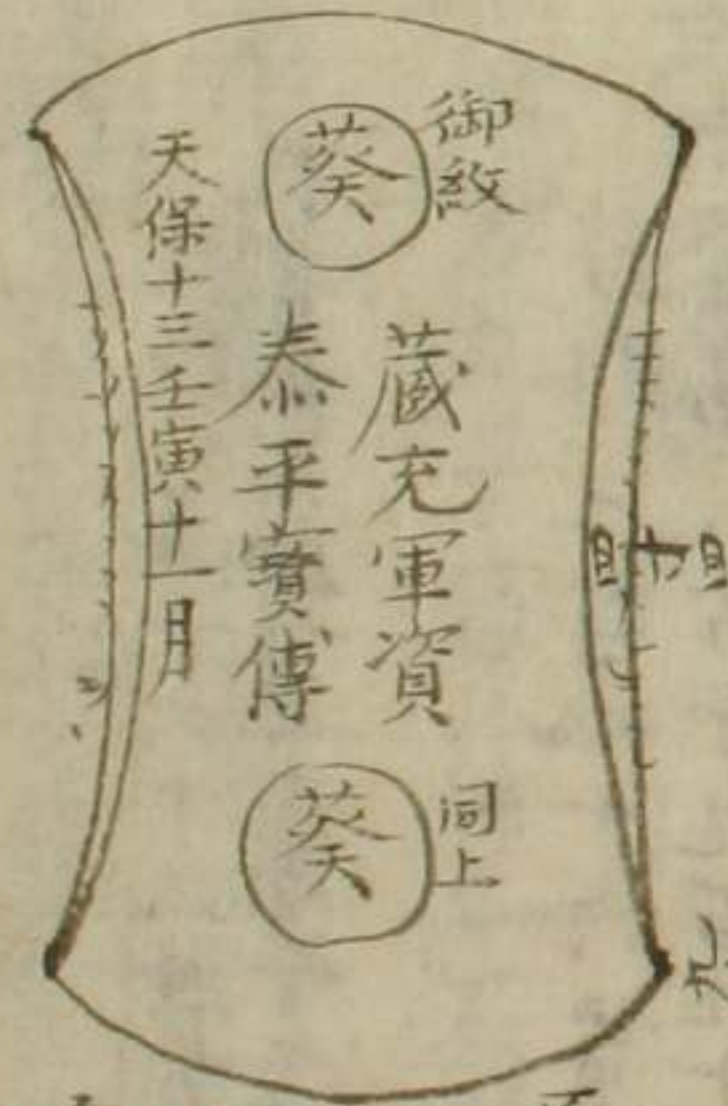 御紋
葵
蔵充軍資
泰平寳傳
天保十三壬寅十一月
同上
葵